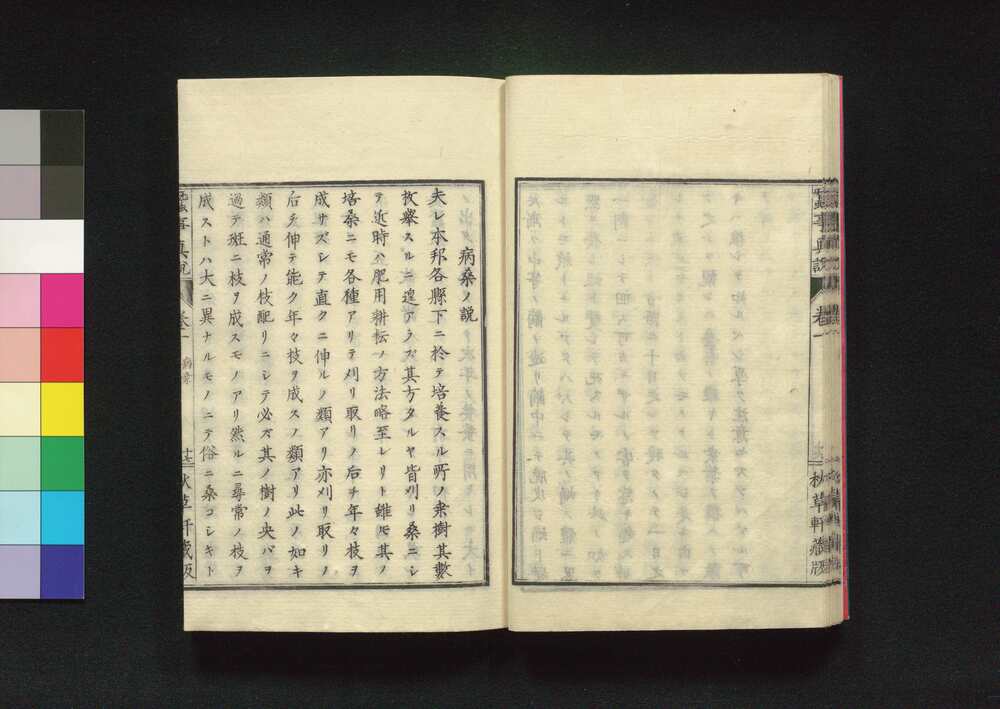 蚕事真説
卷一
秋草軒蔵版
病桑ノ説
夫レ本邦各縣下ニ於テ培養スル所ノ桑樹其數
枚擧スルニ遑アラズ其方タルヤ皆刈リ桑ニシ
テ近時ハ肥用耕耘ノ方法略至レリト雖モ其ノ
培桑ニモ各種アリテ刈リ取リノ后チ年々枝ヲ
成サズシテ直クニ伸ルノ類アリ亦刈リ取リノ
后チ伸テ能ク年々枝ヲ成スノ類アリ此ノ如キ
類ハ通常ノ枝配リニシテ必ズ其ノ樹ノ央バヲ
過テ班ニ枝ヲ成スモノアリ然ルニ尋常ノ枝ヲ
成ストハ大ニ異ナルモノニテ俗ニ桑コシキト
蚕事真説
卷一
病桑
十七
秋草軒蔵版